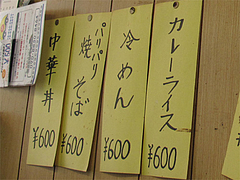 カレーライス
¥600
冷めん
¥600
パリパリ
焼そば
¥600
中華丼
¥600